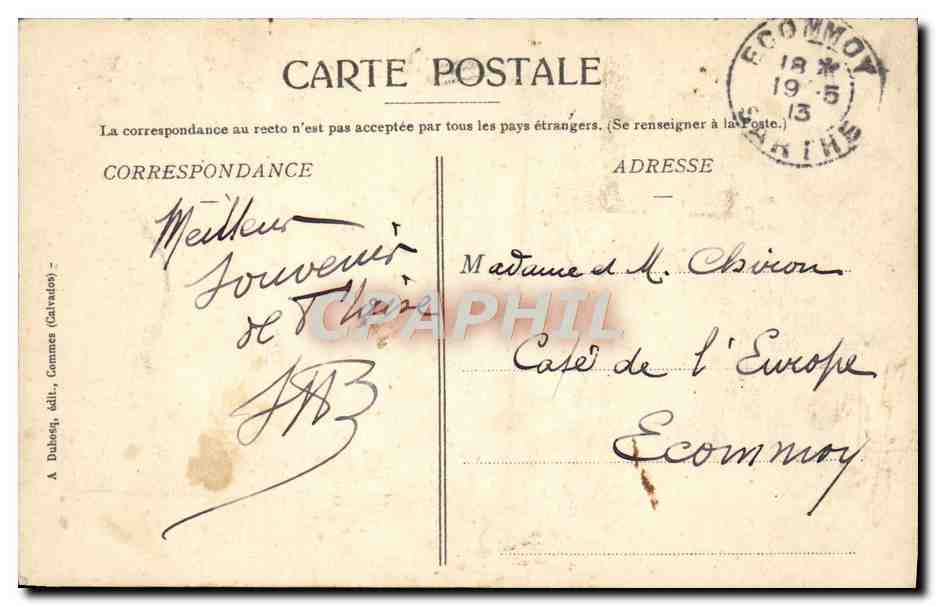 CARTE POSTALE
La correspondance au recto n'est pas acceptée par tous les pays étrangers. (Se renseigner à la Poste.)
CORRESPONDANCE
Meilleur
souvenir
de
A Duhosq, édit., Commes (Calvados) –
ADRESSE
Madame et M. Chiron
Café de l'Europe
Ecommoy
ECOMMOY
18 *
19 -5
13
SARTHE
CPAPHIL